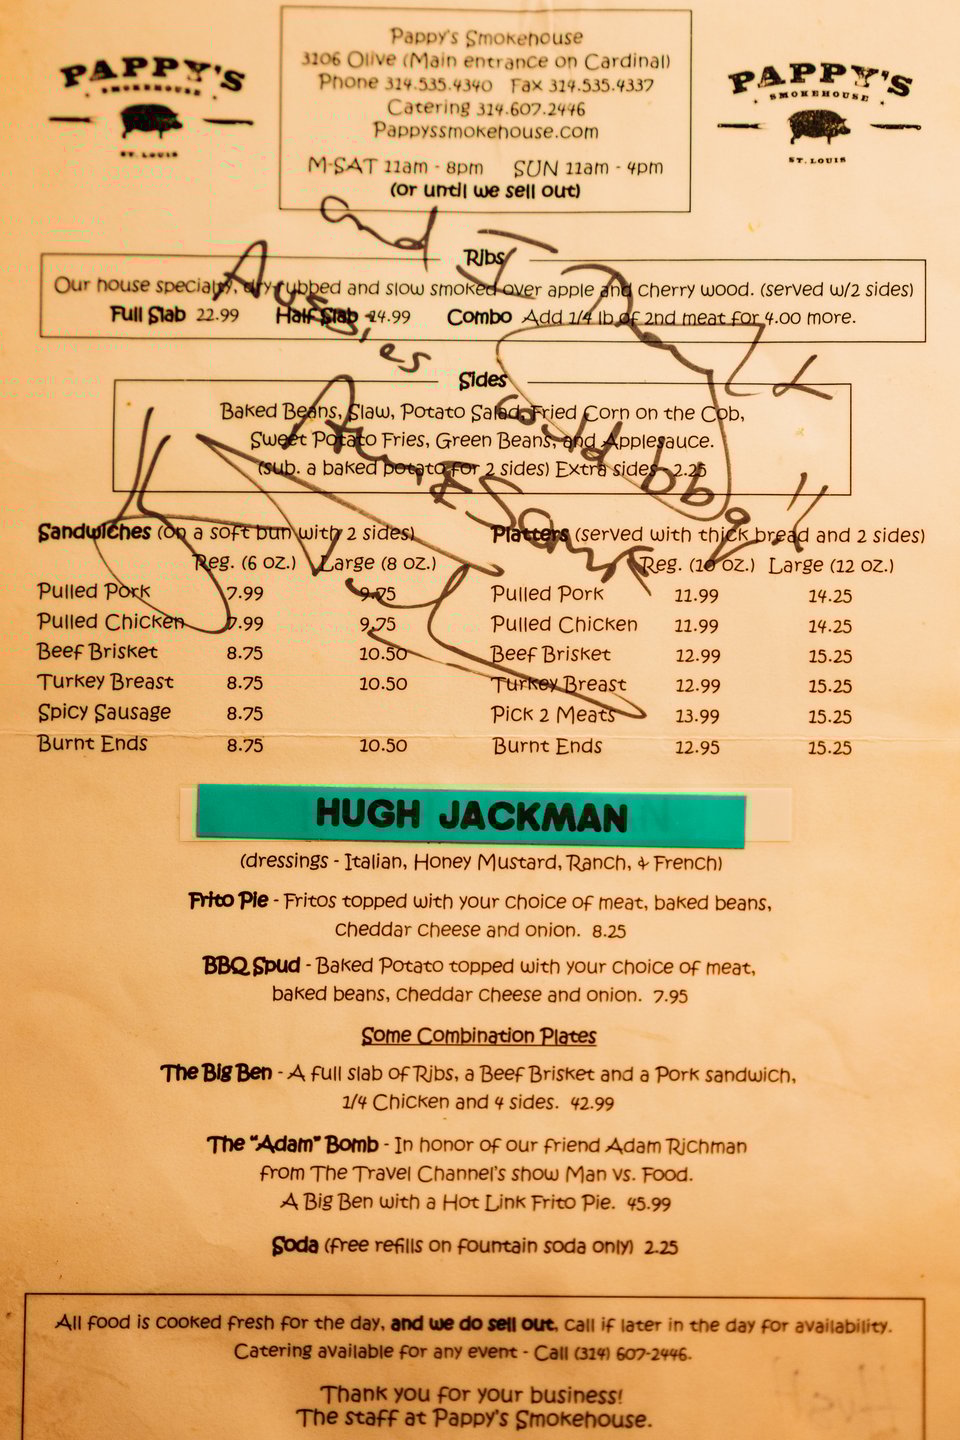 PAPPY'S
SMOKEHOUSE
ST. LOUIS
Pappy's Smokehouse
3106 Olive (Main entrance on Cardinal)
Phone 314.535.4340 Fax 314.535.4337
Catering 314.607.2446
Pappyssmokehouse.com
M-SAT 11am - 8pm SUN 11am - 4pm
(or until we sell out)
PAPPY'S
SMOKEHOUSE
ST. LOUIS
and I
Aussies
could bbq!!
Ribs
Our house specialty, dry-rubbed and slow smoked over apple and cherry wood. (served w/2 sides)
Full Slab 22.99 Half Slab 14.99 Combo Add 1/4 lb of 2nd meat for 4.00 more.
Sides
Baked Beans, Slaw, Potato Salad, Fried Corn on the Cob,
Sweet Potato Fries, Green Beans, and Applesauce.
(sub. a baked potato for 2 sides) Extra sides - 2.25
Sandwiches (on a soft bun with 2 sides)
Reg. (6 oz.) Large (8 oz.)
Pulled Pork 7.99 9.75
Pulled Chicken 7.99 9.75
Beef Brisket 8.75 10.50
Turkey Breast 8.75 10.50
Spicy Sausage 8.75
Burnt Ends 8.75 10.50
Platters (served with thick bread and 2 sides)
Reg. (10 oz.) Large (12 oz.)
Pulled Pork 11.99 14.25
Pulled Chicken 11.99 14.25
Beef Brisket 12.99 15.25
Turkey Breast 12.99 15.25
Pick 2 Meats 13.99 15.25
Burnt Ends 12.95 15.25
HUGH JACKMAN
(dressings - Italian, Honey Mustard, Ranch, & French)
Frito Pie - Fritos topped with your choice of meat, baked beans,
cheddar cheese and onion. 8.25
BBQ Spud - Baked Potato topped with your choice of meat,
baked beans, cheddar cheese and onion. 7.95
Some Combination Plates
The Big Ben - A full slab of Ribs, a Beef Brisket and a Pork sandwich,
1/4 Chicken and 4 sides. 42.99
The "Adam" Bomb - In honor of our friend Adam Richman
from The Travel Channel's show Man vs. Food.
A Big Ben with a Hot Link Frito Pie. 45.99
Soda (free refills on fountain soda only) 2.25
All food is cooked fresh for the day, and we do sell out, call if later in the day for availability.
Catering available for any event - Call (314) 607-2446.
Thank you for your business!
The staff at Pappy's Smokehouse.